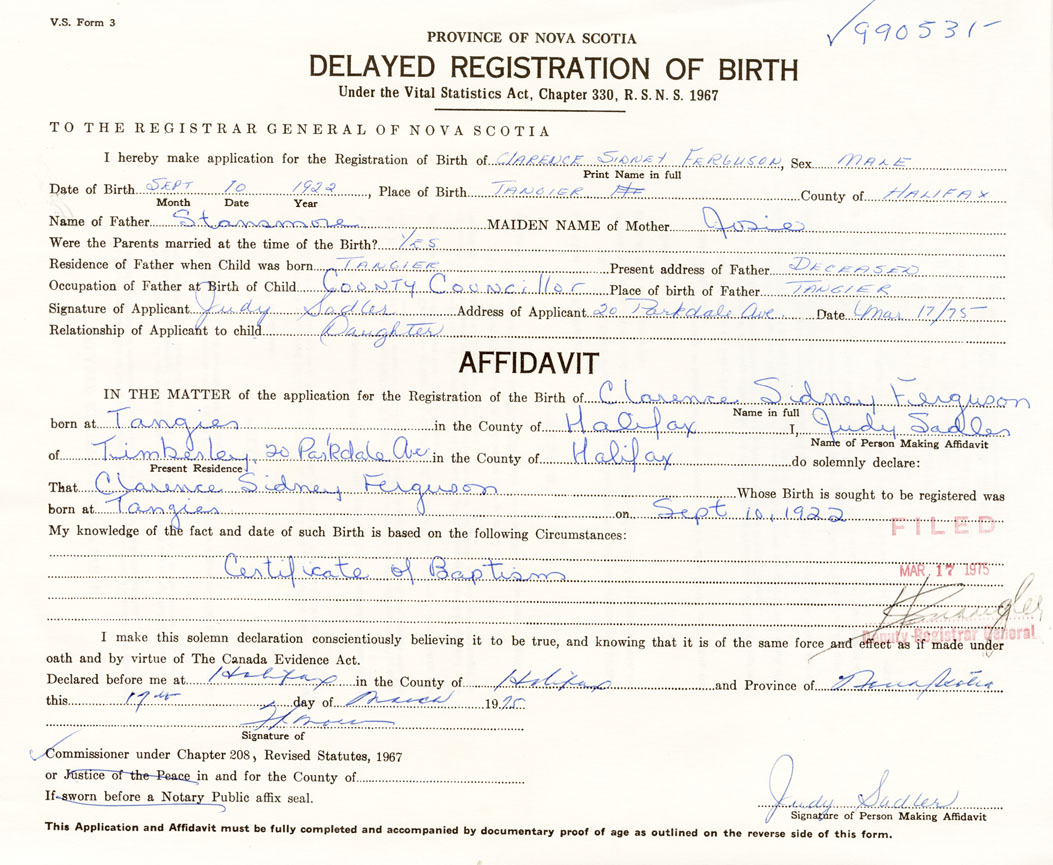 V.S. Form 3
990531-
PROVINCE OF NOVA SCOTIA
DELAYED REGISTRATION OF BIRTH
Under the Vital Statistics Act, Chapter 330, R. S. N. S. 1967
TO THE REGISTRAR GENERAL OF NOVA SCOTIA
I hereby make application for the Registration of Birth of CLARENCE SIDNEY FERGUSON, Sex MALE
Print Name in full
Date of Birth SEPT 10 1922, Place of Birth TANGIER County of HALIFAX
Month Date Year
Name of Father Stansmore MAIDEN NAME of Mother Josie
Were the Parents married at the time of the Birth? YES
Residence of Father when Child was born TANGIER Present address of Father DECEASED
Occupation of Father at Birth of Child COUNTY COUNCILLOR Place of birth of Father TANGIER
Signature of Applicant Judy Sadler Address of Applicant 20 Parkdale Ave Date Mar 17/75
Relationship of Applicant to child Daughter
AFFIDAVIT
IN THE MATTER of the application for the Registration of the Birth of Clarence Sidney Ferguson
Name in full
born at Tangier in the County of Halifax I, Judy Sadler
Name of Person Making Affidavit
of Timberley, 20 Parkdale Ave in the County of Halifax do solemnly declare:
Present Residence
That Clarence Sidney Ferguson Whose Birth is sought to be registered was
born at Tangier on Sept 10, 1922
My knowledge of the fact and date of such Birth is based on the following Circumstances:
FILED
Certificate of Baptism
MAR. 17 1975
Deputy Registrar General
I make this solemn declaration conscientiously believing it to be true, and knowing that it is of the same force and effect as if made under
oath and by virtue of The Canada Evidence Act.
Declared before me at Halifax in the County of Halifax and Province of Nova Scotia
this 17th day of March 1975
Signature of
Commissioner under Chapter 208, Revised Statutes, 1967
or Justice of the Peace in and for the County of
If sworn before a Notary Public affix seal.
Judy Sadler
Signature of Person Making Affidavit
This Application and Affidavit must be fully completed and accompanied by documentary proof of age as outlined on the reverse side of this form.